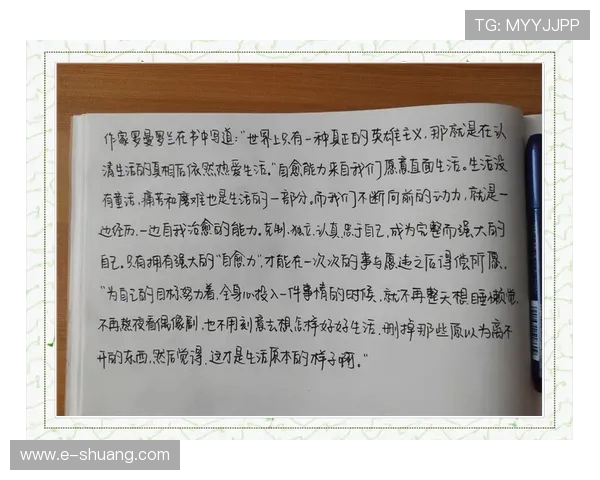 TG: MYYJJPP
作家罗曼罗兰在书中写道："世界上只有一种真正的英雄主义,那就是在认
清生活的真相后依然热爱生活。"自愈能力来自我们愿意直面生活。生活没
有童话,痛苦和魔难也是生活的一部分,而我们不断向前的动力,就是一
边经历,一边自我治愈的能力。克制、独立、认真、忠于自己,成为完整而强大的
自己。只有拥有强大的"自愈力",才能在一次次的事与愿违之后得偿所愿。
"为自己的目标努力着,全身心投入一件事情的时候,就不再整天想睡懒觉,
不再熬夜看偶像剧,也不用刻意去想怎样好好生活,删掉那些原以为离不
开的东西,然后觉得,这才是生活原本的样子啊。"
www.e-shuang.com